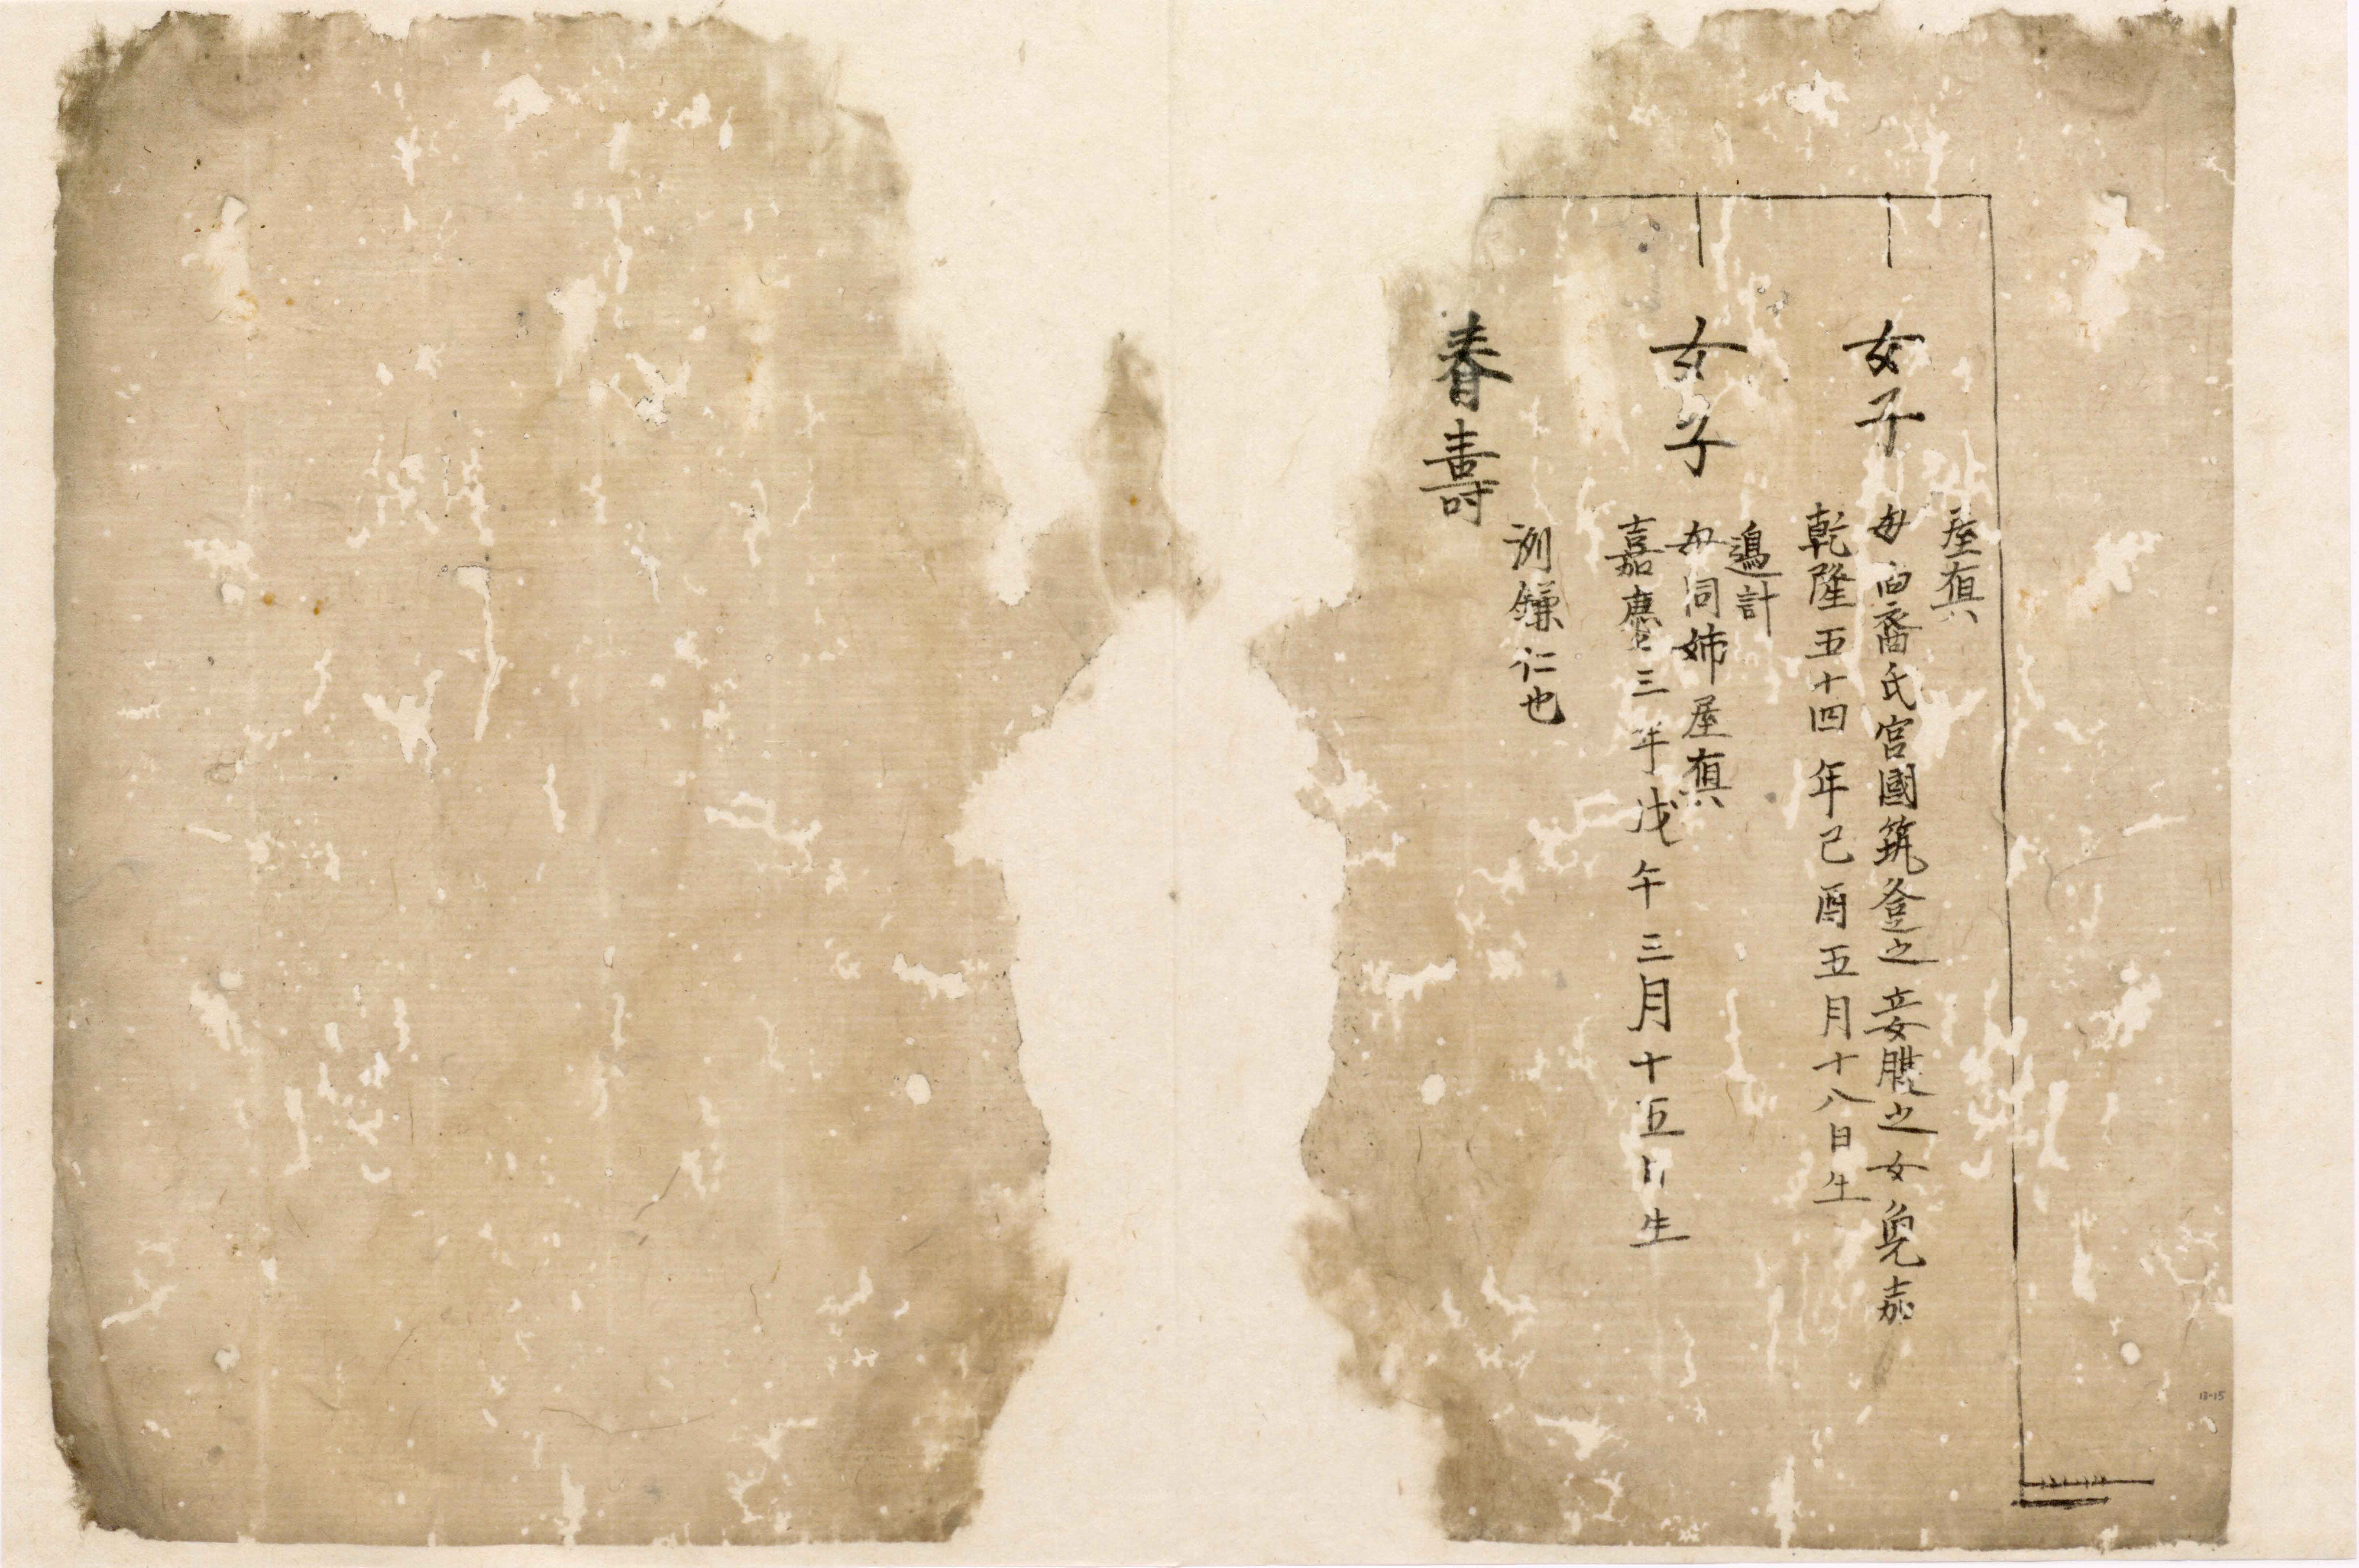 女子
屋
母向裔氏宮國筑登之妾腹之女免嘉
乾隆五十四年己酉五月十八日生
女子
計
母同姉屋
嘉慶三年戊午三月十五日生
春壽
洲鎌仁也
13-15